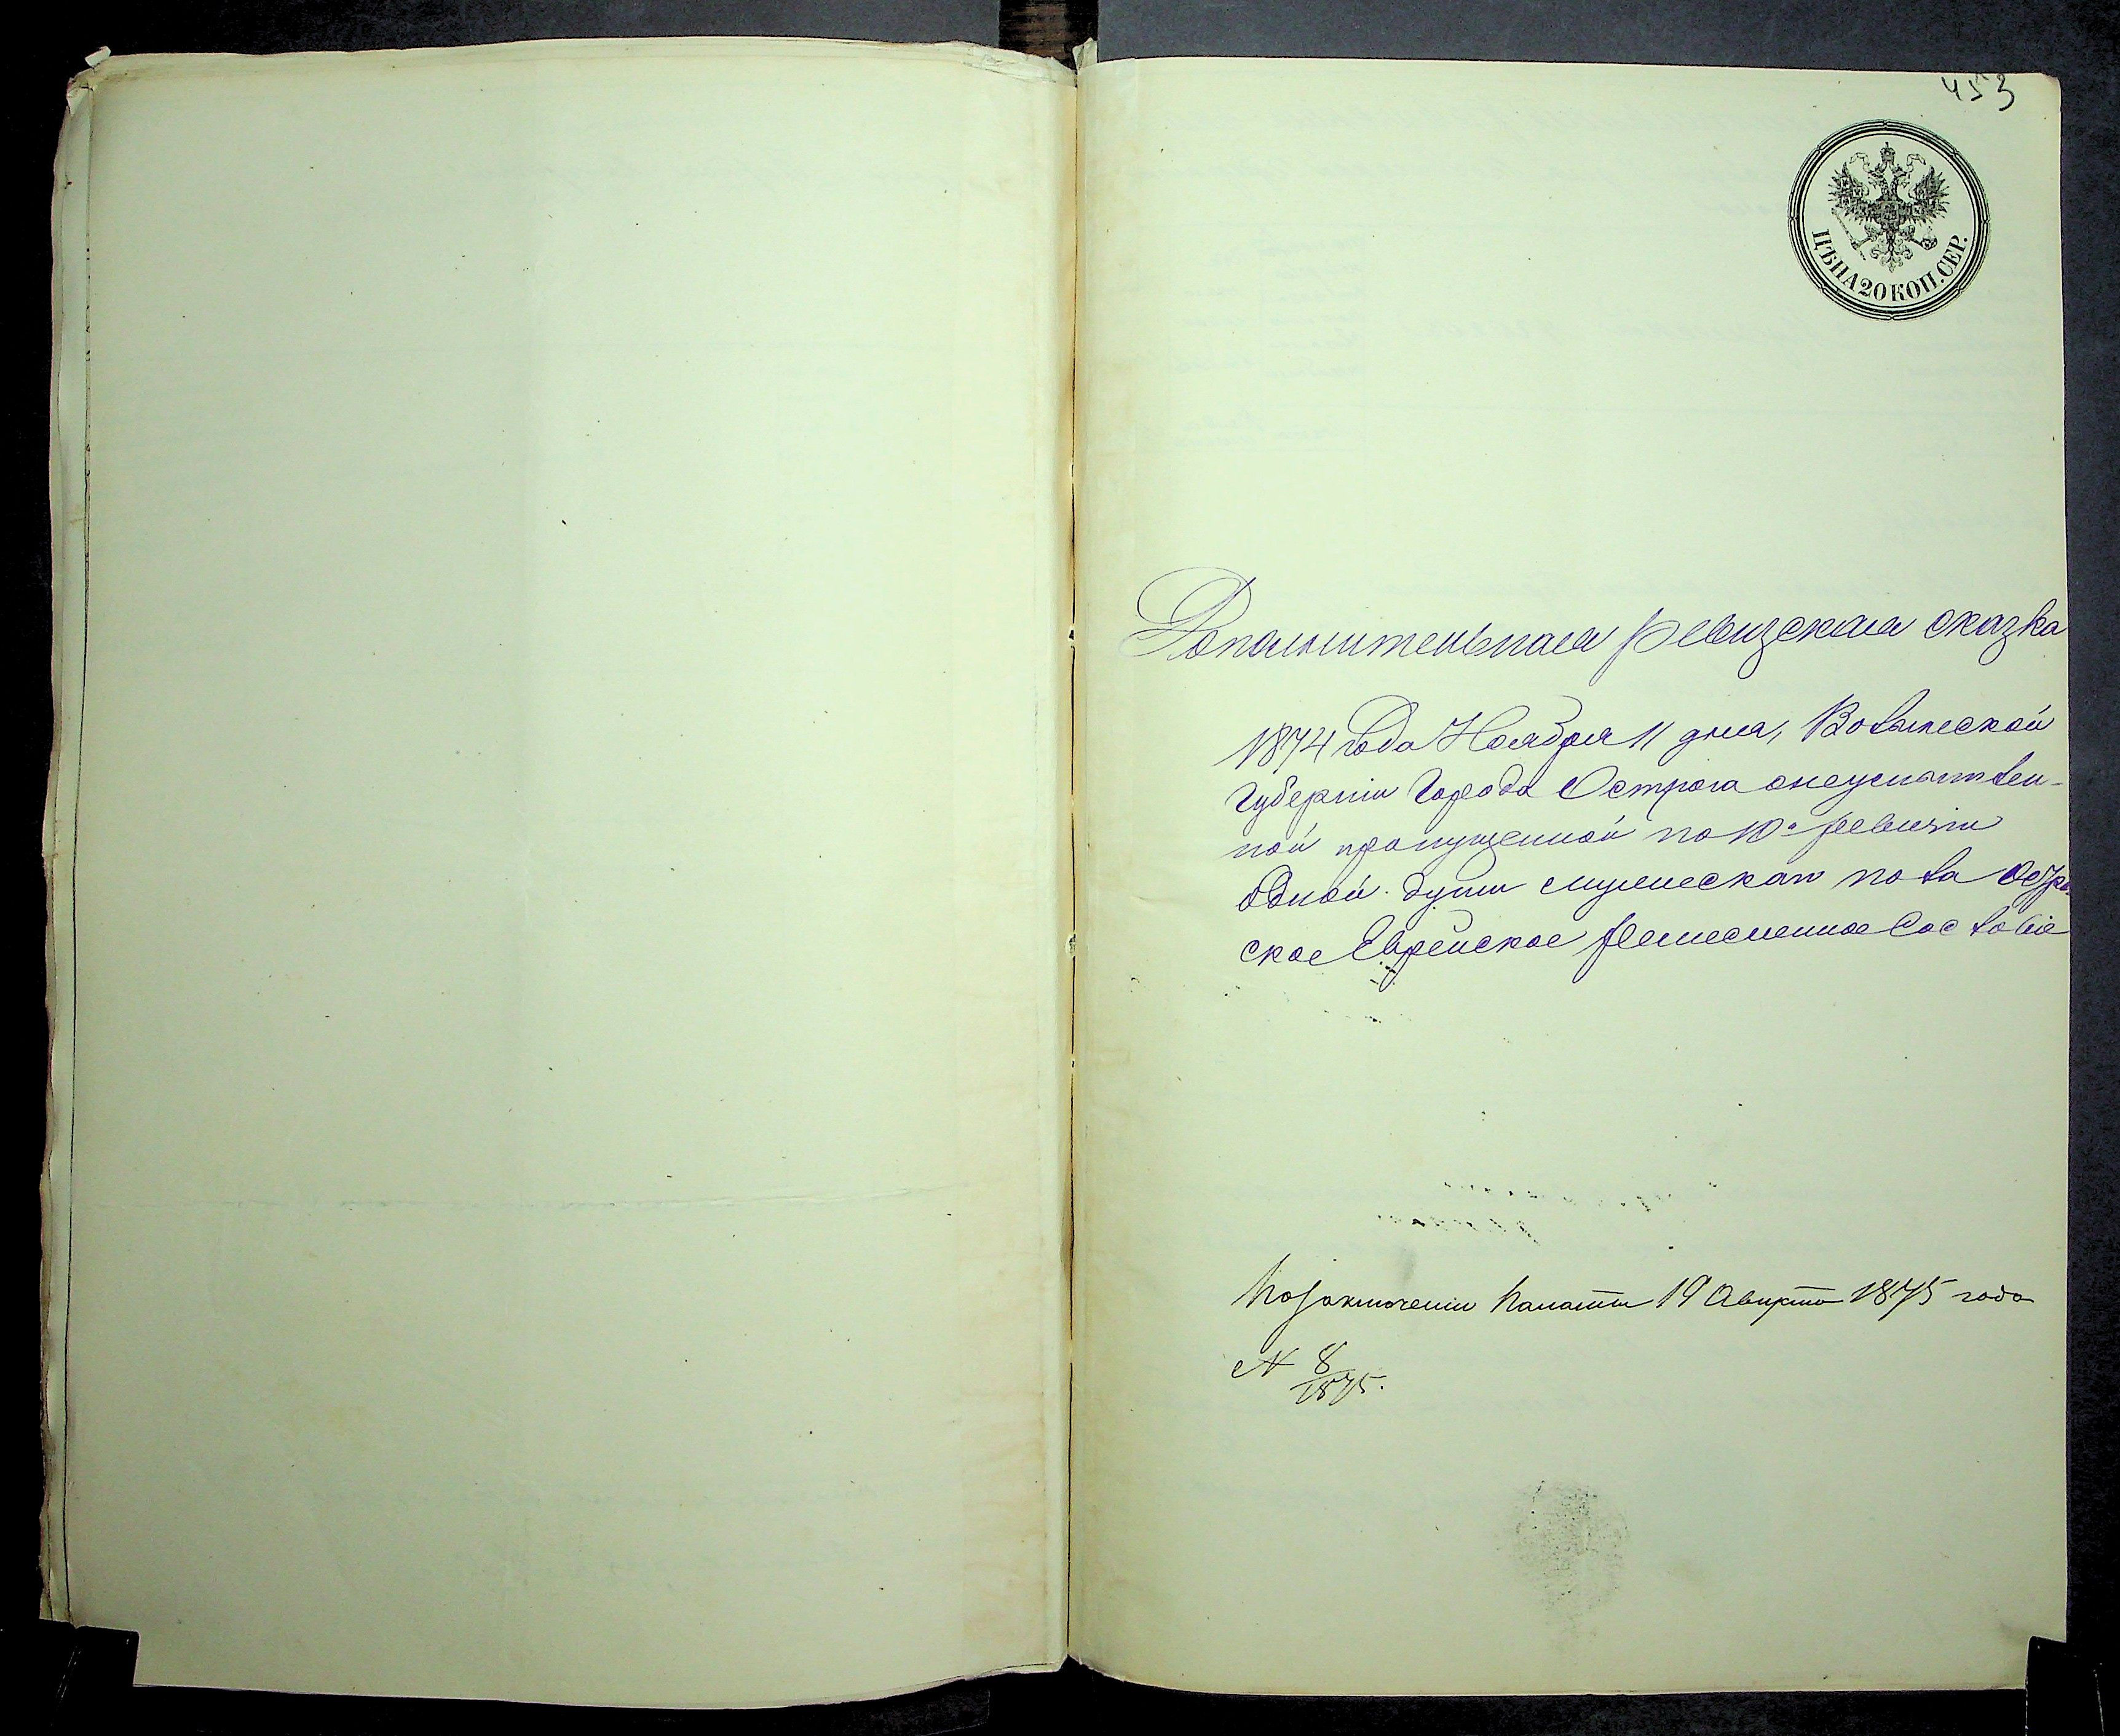 453
ЦѢНА 20 КОП. СЕР.
Дополнительная ревизская сказка
1874 года Ноября 11 дня, Волынской
Губерніи Города Острога о неумышлен-
ной пропущенной по 10й ревизіи
одной души мужескаго пола Остро
ское Еврейское Ремесленное Сословіе
По заключенію Палаты 19 Августа 1875 года
№ 8/1875.